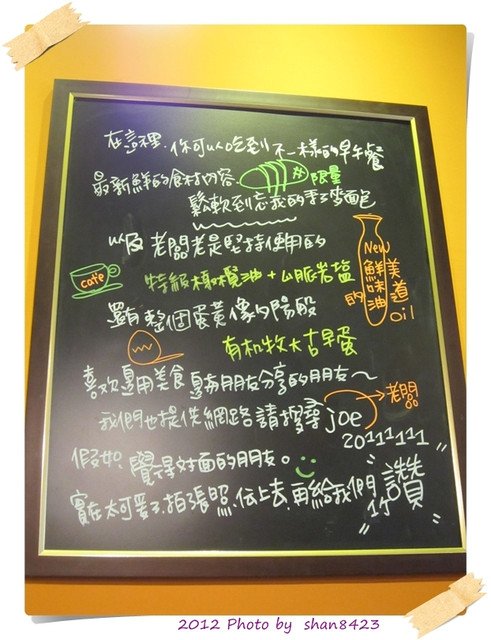 在這裡.你可以吃到不一樣的早午餐
最新鮮的食材內容.
限量
鬆軟到忘我的手工麥面包
以及 老闆老是堅持使用的
café
特級橄欖油+山脈岩鹽
New
鮮味油
美道oil
的
還有整個蛋黃像夕陽般
有机牧大古早蛋
喜欢邊用美食邊与朋友分享的朋友~
老闆
我們也提供網路請搜尋 joe
20111111
假如.覺得對面的朋友。
實在太可愛了.拍張照.伝上去.再給我們1个讚
2012 Photo by shan8423